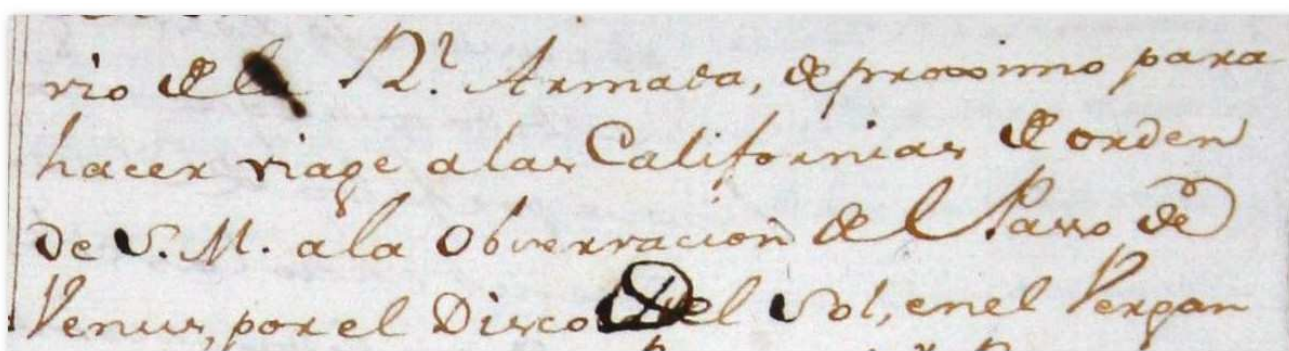 rio de la Rl. Armada, de proximo para
hacer viage alas Californias de orden
De S. M. ala Observacion del Passo de
Venus, por el Disco del Sol, enel Vergan